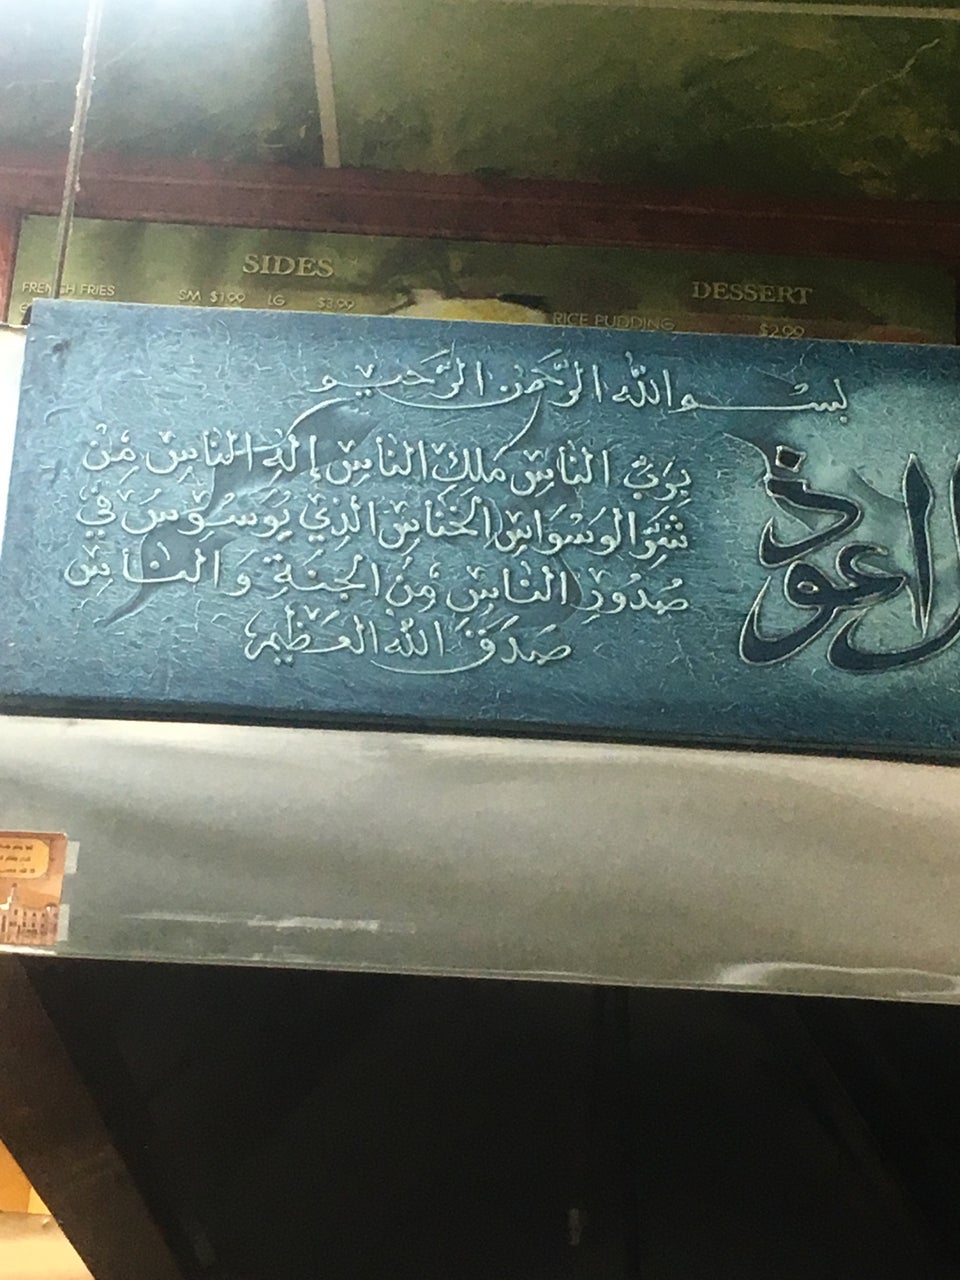 SIDES
FRENCH FRIES SM $1.99 LG $3.99
DESSERT
RICE PUDDING $2.99
بسم الله الرحمن الرحيم
اعوذ
بِرَبِّ النَّاسِ مَلِكِ النَّاسِ إِلَهِ النَّاسِ مِنْ
شَرِّ الْوَسْوَاسِ الْخَنَّاسِ الَّذِي يُوَسْوِسُ فِي
صُدُورِ النَّاسِ مِنَ الْجِنَّةِ وَالنَّاسِ
صَدَقَ اللهُ الْعَظِيمُ